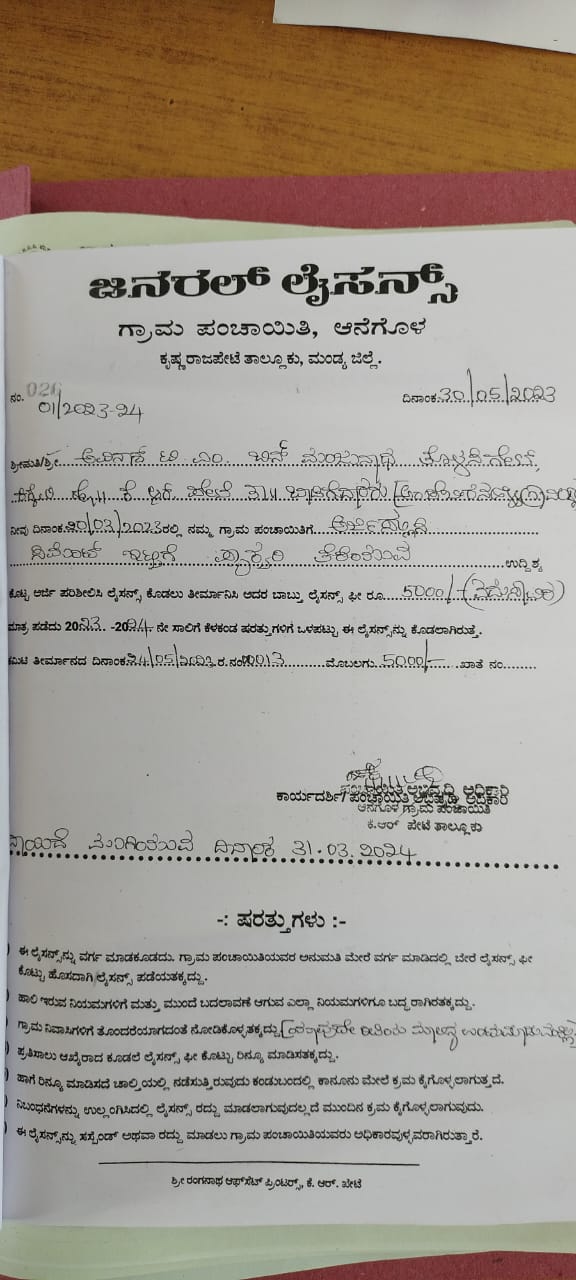 ಜನರಲ್ ಲೈಸನ್ಸ್
ಗ್ರಾಮ ಪಂಚಾಯಿತಿ, ಆನೆಗೊಳ
ಕೃಷ್ಣರಾಜಪೇಟೆ ತಾಲ್ಲೂಕು, ಮಂಡ್ಯ ಜಿಲ್ಲೆ.
ನಂ. 026 ದಿನಾಂಕ:30/05/2023
01/2023-24
ಶ್ರೀಮತಿ/ಶ್ರೀ ಅವಿನಾಶ್ ಟಿ ಎಂ. ಬಿನ್ ಮಂಜುನಾಥ
ಕೆ ಆರ್ ಪೇಟೆ ತಾ||
ನೀವು ದಿನಾಂಕ:20/03/2023ರಲ್ಲಿ ನಮ್ಮ ಗ್ರಾಮ ಪಂಚಾಯಿತಿಗೆ
ಸಿಮೆಂಟ್ ಇಟ್ಟಿಗೆ ಫ್ಯಾಕ್ಟರಿ ಉದ್ದಿಶ್ಯ
ಕೊಟ್ಟ ಅರ್ಜಿ ಪರಿಶೀಲಿಸಿ ಲೈಸನ್ಸ್ ಕೊಡಲು ತೀರ್ಮಾನಿಸಿ ಅದರ ಬಾಬ್ತು ಲೈಸನ್ಸ್ ಫೀ ರೂ. 5000/-
ಮಾತ್ರ ಪಡೆದು 2023 -2024 ನೇ ಸಾಲಿಗೆ ಕೆಳಕಂಡ ಷರತ್ತುಗಳಿಗೆ ಒಳಪಟ್ಟು ಈ ಲೈಸನ್ಸ್‌ನ್ನು ಕೊಡಲಾಗಿರುತ್ತೆ.
ಕಮಿಟಿ ತೀರ್ಮಾನದ ದಿನಾಂಕ:24/05/2023 ರ.ನಂ ಮೊಬಲಗು 5000/- ಖಾತೆ ನಂ
ಪಂಚಾಯಿತಿ ಅಭಿವೃದ್ಧಿ ಅಧಿಕಾರಿ
ಕಾರ್ಯದರ್ಶಿ/ಪಂಚಾಯಿತಿ ಅಭಿವೃದ್ಧಿ ಅಧಿಕಾರಿ
ಆನೆಗೊಳ ಗ್ರಾಮ ಪಂಚಾಯಿತಿ
ಕೆ.ಆರ್ ಪೇಟೆ ತಾಲ್ಲೂಕು
ವಾಯಿದೆ ಮುಗಿಯುವ ದಿನಾಂಕ 31.03.2024
-: ಷರತ್ತುಗಳು :-
) ಈ ಲೈಸನ್ಸ್‌ನ್ನು ವರ್ಗ ಮಾಡಕೂಡದು. ಗ್ರಾಮ ಪಂಚಾಯಿತಿಯವರ ಅನುಮತಿ ಮೇರೆ ವರ್ಗ ಮಾಡಿದಲ್ಲಿ ಬೇರೆ ಲೈಸನ್ಸ್ ಫೀ
ಕೊಟ್ಟು ಹೊಸದಾಗಿ ಲೈಸನ್ಸ್ ಪಡೆಯತಕ್ಕದ್ದು.
) ಹಾಲಿ ಇರುವ ನಿಯಮಗಳಿಗೆ ಮತ್ತು ಮುಂದೆ ಬದಲಾವಣೆ ಆಗುವ ಎಲ್ಲಾ ನಿಯಮಗಳಿಗೂ ಬದ್ಧರಾಗಿರತಕ್ಕದ್ದು.
) ಗ್ರಾಮ ನಿವಾಸಿಗಳಿಗೆ ತೊಂದರೆಯಾಗದಂತೆ ನೋಡಿಕೊಳ್ಳತಕ್ಕದ್ದು
) ಪ್ರತಿಸಾಲು ಆಖೈರಾದ ಕೂಡಲೆ ಲೈಸನ್ಸ್ ಫೀ ಕೊಟ್ಟು ರಿನ್ಯೂ ಮಾಡಿಸತಕ್ಕದ್ದು.
) ಹಾಗೆ ರಿನ್ಯೂ ಮಾಡಿಸದೆ ಚಾಲ್ತಿಯಲ್ಲಿ ನಡೆಸುತ್ತಿರುವುದು ಕಂಡುಬಂದಲ್ಲಿ ಕಾನೂನು ಮೇಲೆ ಕ್ರಮ ಕೈಗೊಳ್ಳಲಾಗುತ್ತದೆ.
) ನಿಬಂಧನೆಗಳನ್ನು ಉಲ್ಲಂಗಿಸಿದಲ್ಲಿ ಲೈಸನ್ಸ್ ರದ್ದು ಮಾಡಲಾಗುವುದಲ್ಲದೆ ಮುಂದಿನ ಕ್ರಮ ಕೈಗೊಳ್ಳಲಾಗುವುದು.
) ಈ ಲೈಸನ್ಸ್‌ನ್ನು ಸಸ್ಪೆಂಡ್ ಅಥವಾ ರದ್ದು ಮಾಡಲು ಗ್ರಾಮ ಪಂಚಾಯಿತಿಯವರು ಅಧಿಕಾರವುಳ್ಳವರಾಗಿರುತ್ತಾರೆ.
ಶ್ರೀ ರಂಗನಾಥ ಆಫ್‌ಸೆಟ್ ಪ್ರಿಂಟರ್ಸ್, ಕೆ. ಆರ್. ಪೇಟೆ